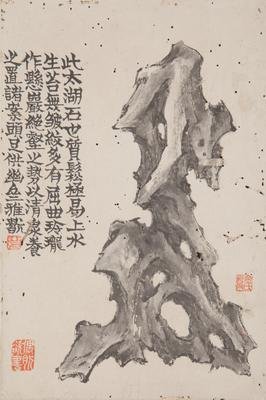 此太湖石也質鬆極易上水
生苔無皴紋多有屈曲玲瓏
作懸巖絕壑之勢以清泉養
之置諸案頭足供幽人雅歡